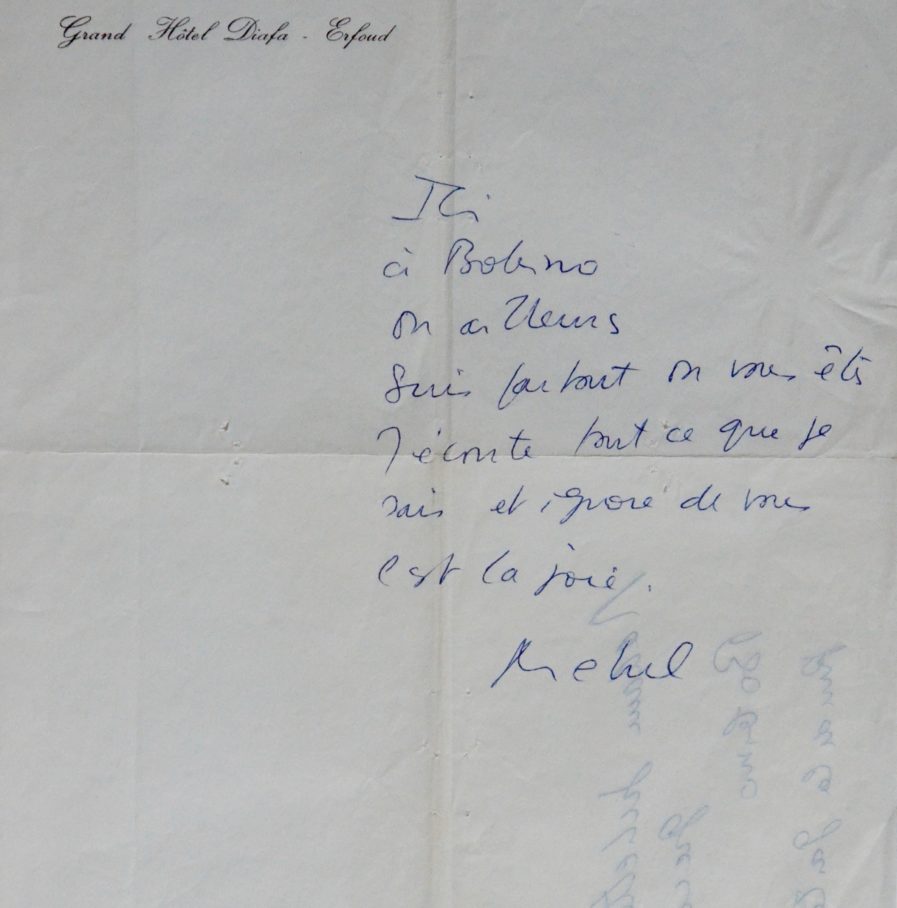 Grand Hôtel Diafa - Erfoud
Ici
à Bobino
ou ailleurs
Suis partout ou vous êtes
J'écoute tout ce que je
sais et ignore de vous
c'est la joie.
Michel
Bobino